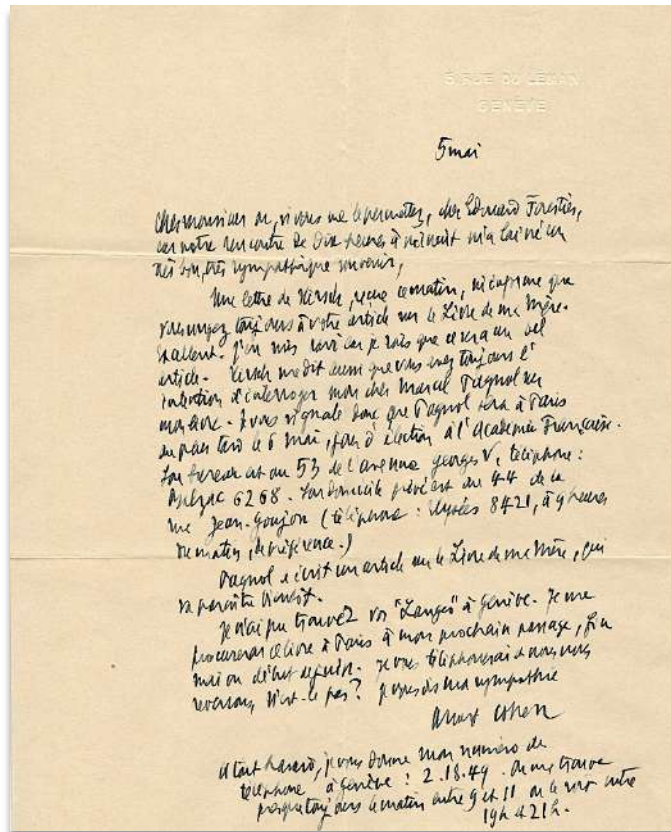 5, RUE DU LÉMAN
GENÈVE
5 mai
cher monsieur ou, si vous me le permettez, cher Edouard Forestier,
car notre rencontre de dix heures à minuit m'a laissé un
très bon, très sympathique souvenir,
Une lettre de Kirsch, reçue ce matin, m'exprime que
vous songez toujours à votre article sur le Livre de ma Mère.
Excellent. J'en suis ravi car je sais que ce sera un bel
article. Kirsch me dit aussi que vous avez toujours l'
intention d'interroger mon cher Marcel Pagnol sur
mon livre. Je vous signale donc que Pagnol sera à Paris
au plus tard le 6 mai, jour d'élection à l'Académie Française.
Son bureau est au 53 de l'avenue georges V, téléphone :
Balzac 6268. Son domicile privé est au 44 de la
rue Jean-Goujon (téléphone : Elysées 8421, à 9 heures
du matin, de préférence.)
Pagnol a écrit un article sur le Livre de ma Mère, qui
va paraître bientôt.
Je n'ai pu trouver vos "Langes" à Genève. Je me
procurerai ce livre à Paris à mon prochain passage, fin
mai ou début de juin. Je vous téléphonerai et nous nous
reverrons, n'est-ce pas? Je vous dis ma sympathie
Albert Cohen
A tout hasard, je vous donne mon numéro de
téléphone à Genève : 2.18.49. On me trouve
presque toujours le matin entre 9 et 11 ou le soir entre
19h et 21h.